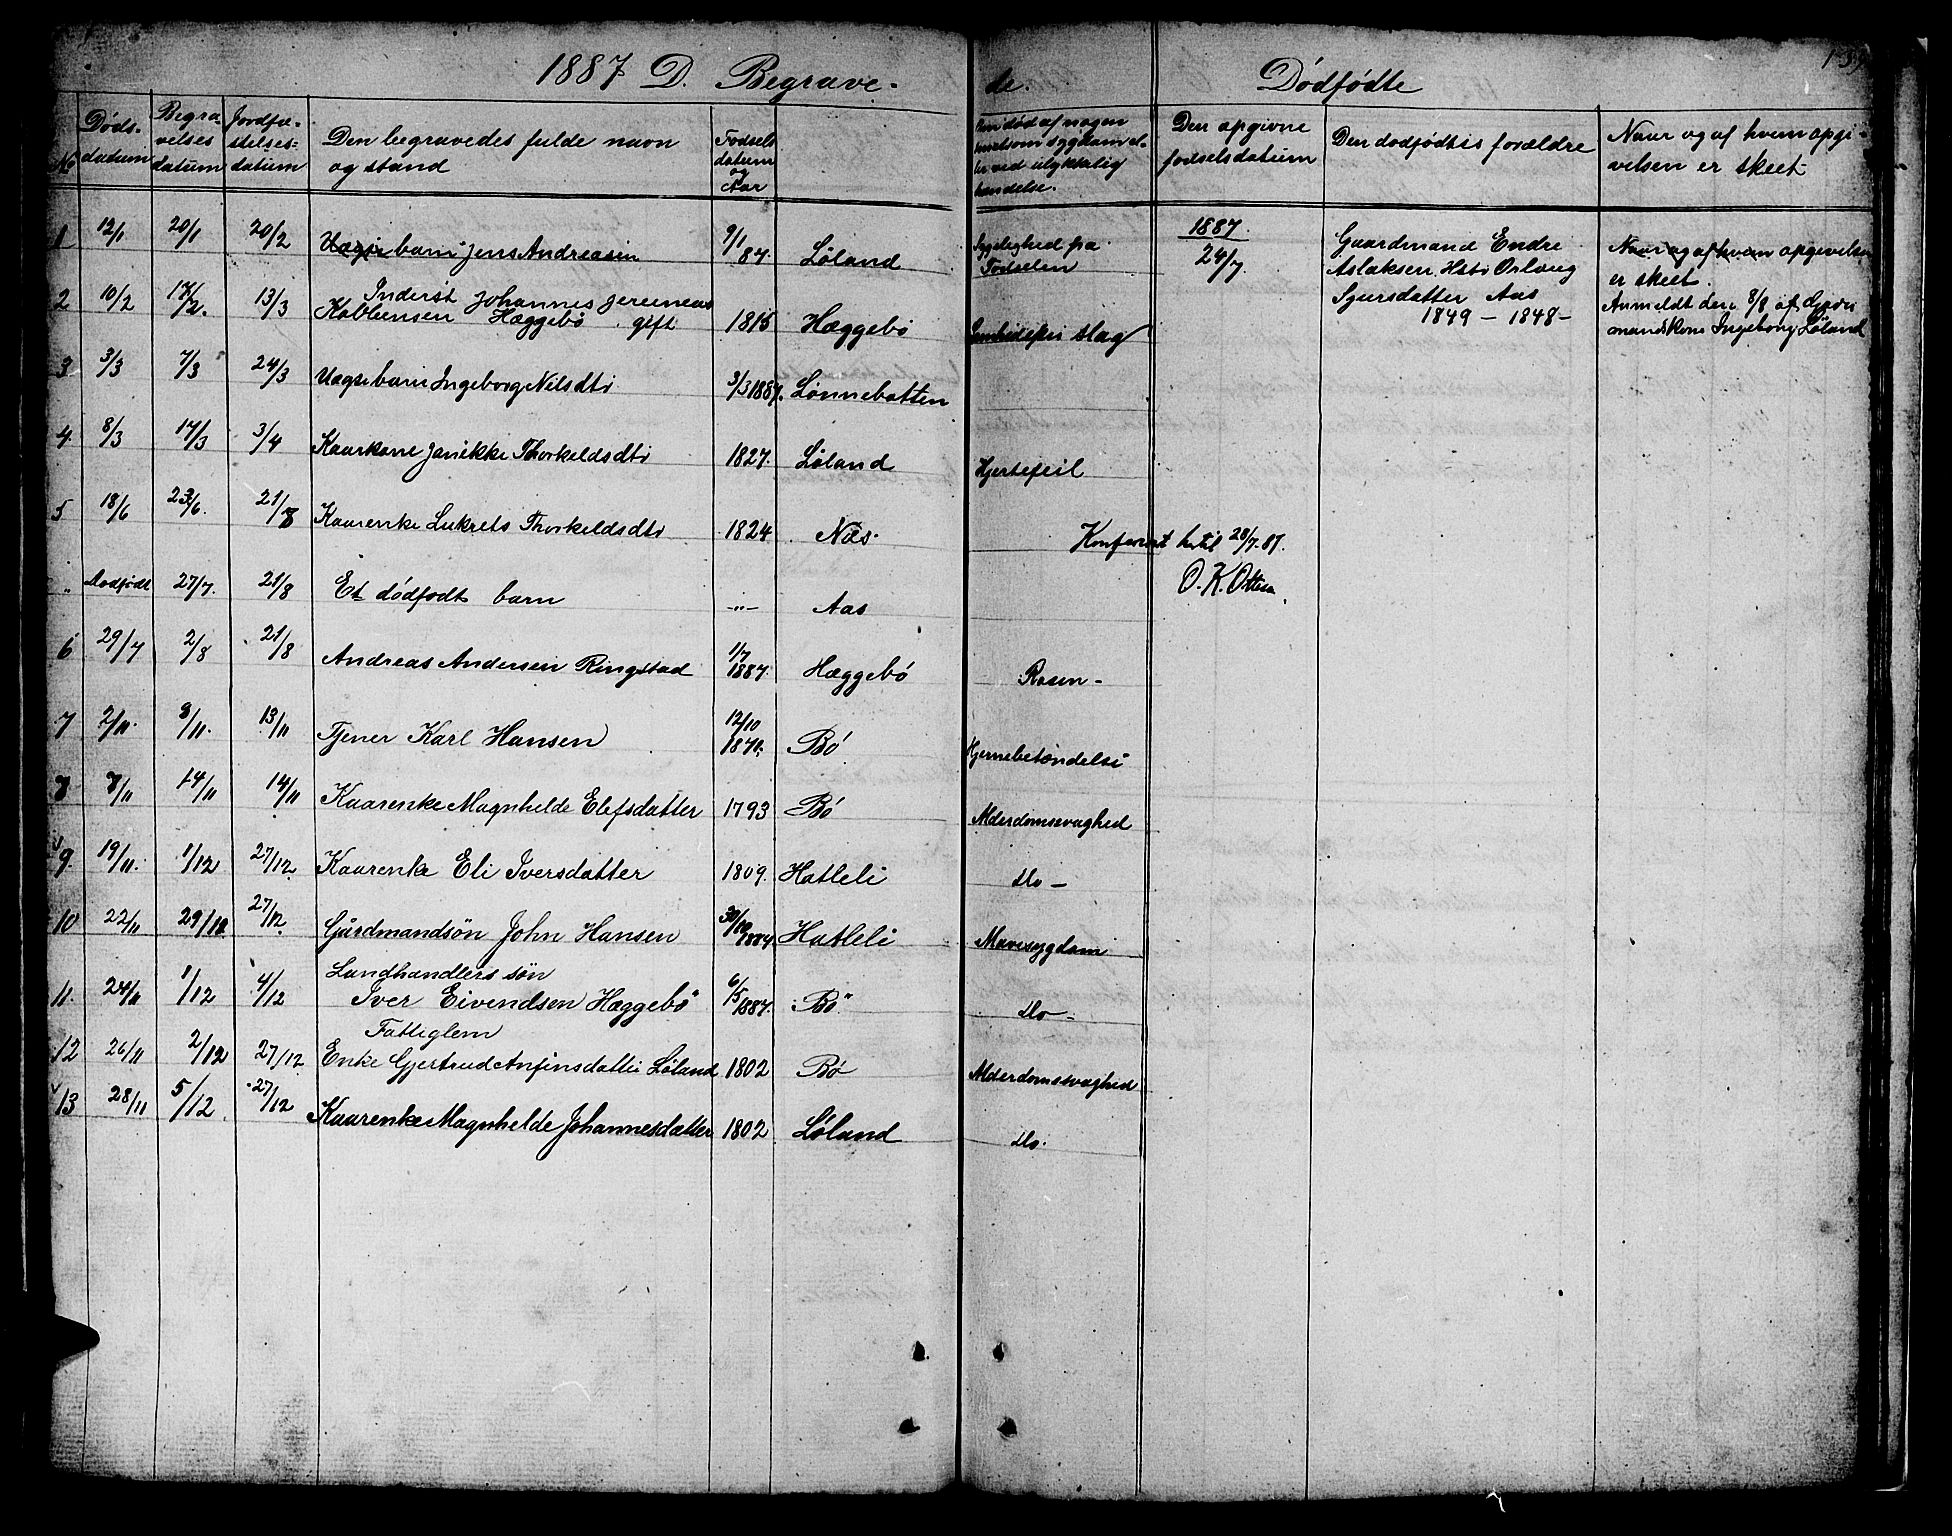 1887 D. Begrave-
de.
Dödfødte
No
Døds-
datum
Begra
velses
datum
Jordfæ-
stelses-
datum
Den begravedes fulde navn
og stand
Fødsels
datum
og
Aar
død af nogen
som sygdom el-
ved ulykkelig
hændelse.
Den opgivne
fødselsdatum
Den dødfødtes forældre
Naar og af hvem opgi-
velsen er skeet
1 12/1 20/1 20/2 barn Jens Andreasen 9/1 87. Løland Sygelighed fra Fødselen
2 10/2 17/2. 13/3 Inderst Johannes Jeremeas Hæggebö. gift 1815 Hæggebö slag
3 3/3 7/3 24/3 barn Ingeborg Nilsdtr 3/3 1887. Lönnebotten
4. 8/3 17/3 3/4 Kaarkone Janikke Thorkeldsdtr 1827. Løland Hjertefeil
5 18/6 23/6. 21/8 Kaarenke Lukrets Thorkeldsdtr 1824 Næs.
" Dødfødt 27/7. 21/8 Et dödfødt barn -"- Aas
6 29/7 2/8 21/8 Andreas Andersen Ringstad 1/7 1887. Hæggebö Rosen-
7 2/11. 8/11. 13/11 Tjener Karl Hansen 12/10 Bö Hjernebetændelse
8 8/11 14/11 14/11 Kaarenke Magnhilde Elefsdatter 1793 Bö Alderdomssvaghed
9. 19/11. 1/12 27/12. Kaarenke Eli Iversdatter 1809. Hatleli Do-
10 22/11 29/12. 27/12. Gårdmandsön John Hansen Hatleli Mavesygdom
11. 24/11 1/12 4/12 Landhandlers sön Iver Eivendsen Hæggebö 6/5 1887. Bö Do-
12 26/11 2/12 27/12 Fattiglem Enke Gjertrud Anfinsdatter Löland 1802 Bö Alderdomssvaghed
13 28/11 5/12. 27/12 Kaarenke Magnhelde Johannesdatter 1802 Löland Do.
1887.
24/7
Gaardmand Endre
Aslaksen. Hstr Oslaug
Sjursdatter Aas
1849 - 1848 -
Naar og af hvem opgivelsen
er skeet.
Anmeldt den 8/8 af
mandskone Ingeborg Löland
Konferert hertil 28/7. 87.
O. K. Ottesen.